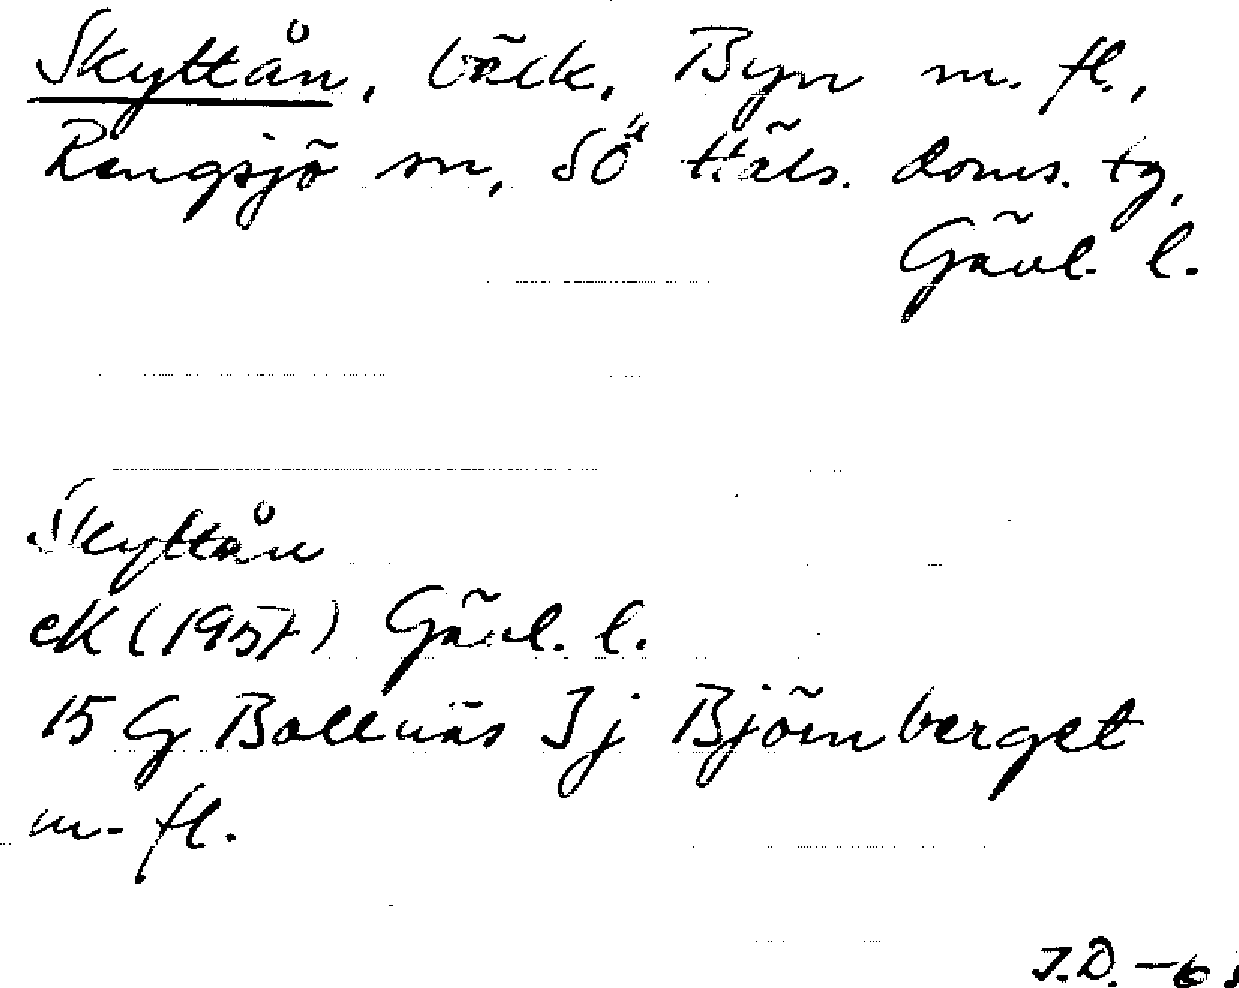 Skyttån, bäck, Byn m. fl.,
Rengsjö sn, SÖ Häls. doms. tg,
Gävl. l.
Skyttån
eK (1957) Gävl. l.
15 G Bollnäs 3 j Björnberget
m. fl.
J.D. -6